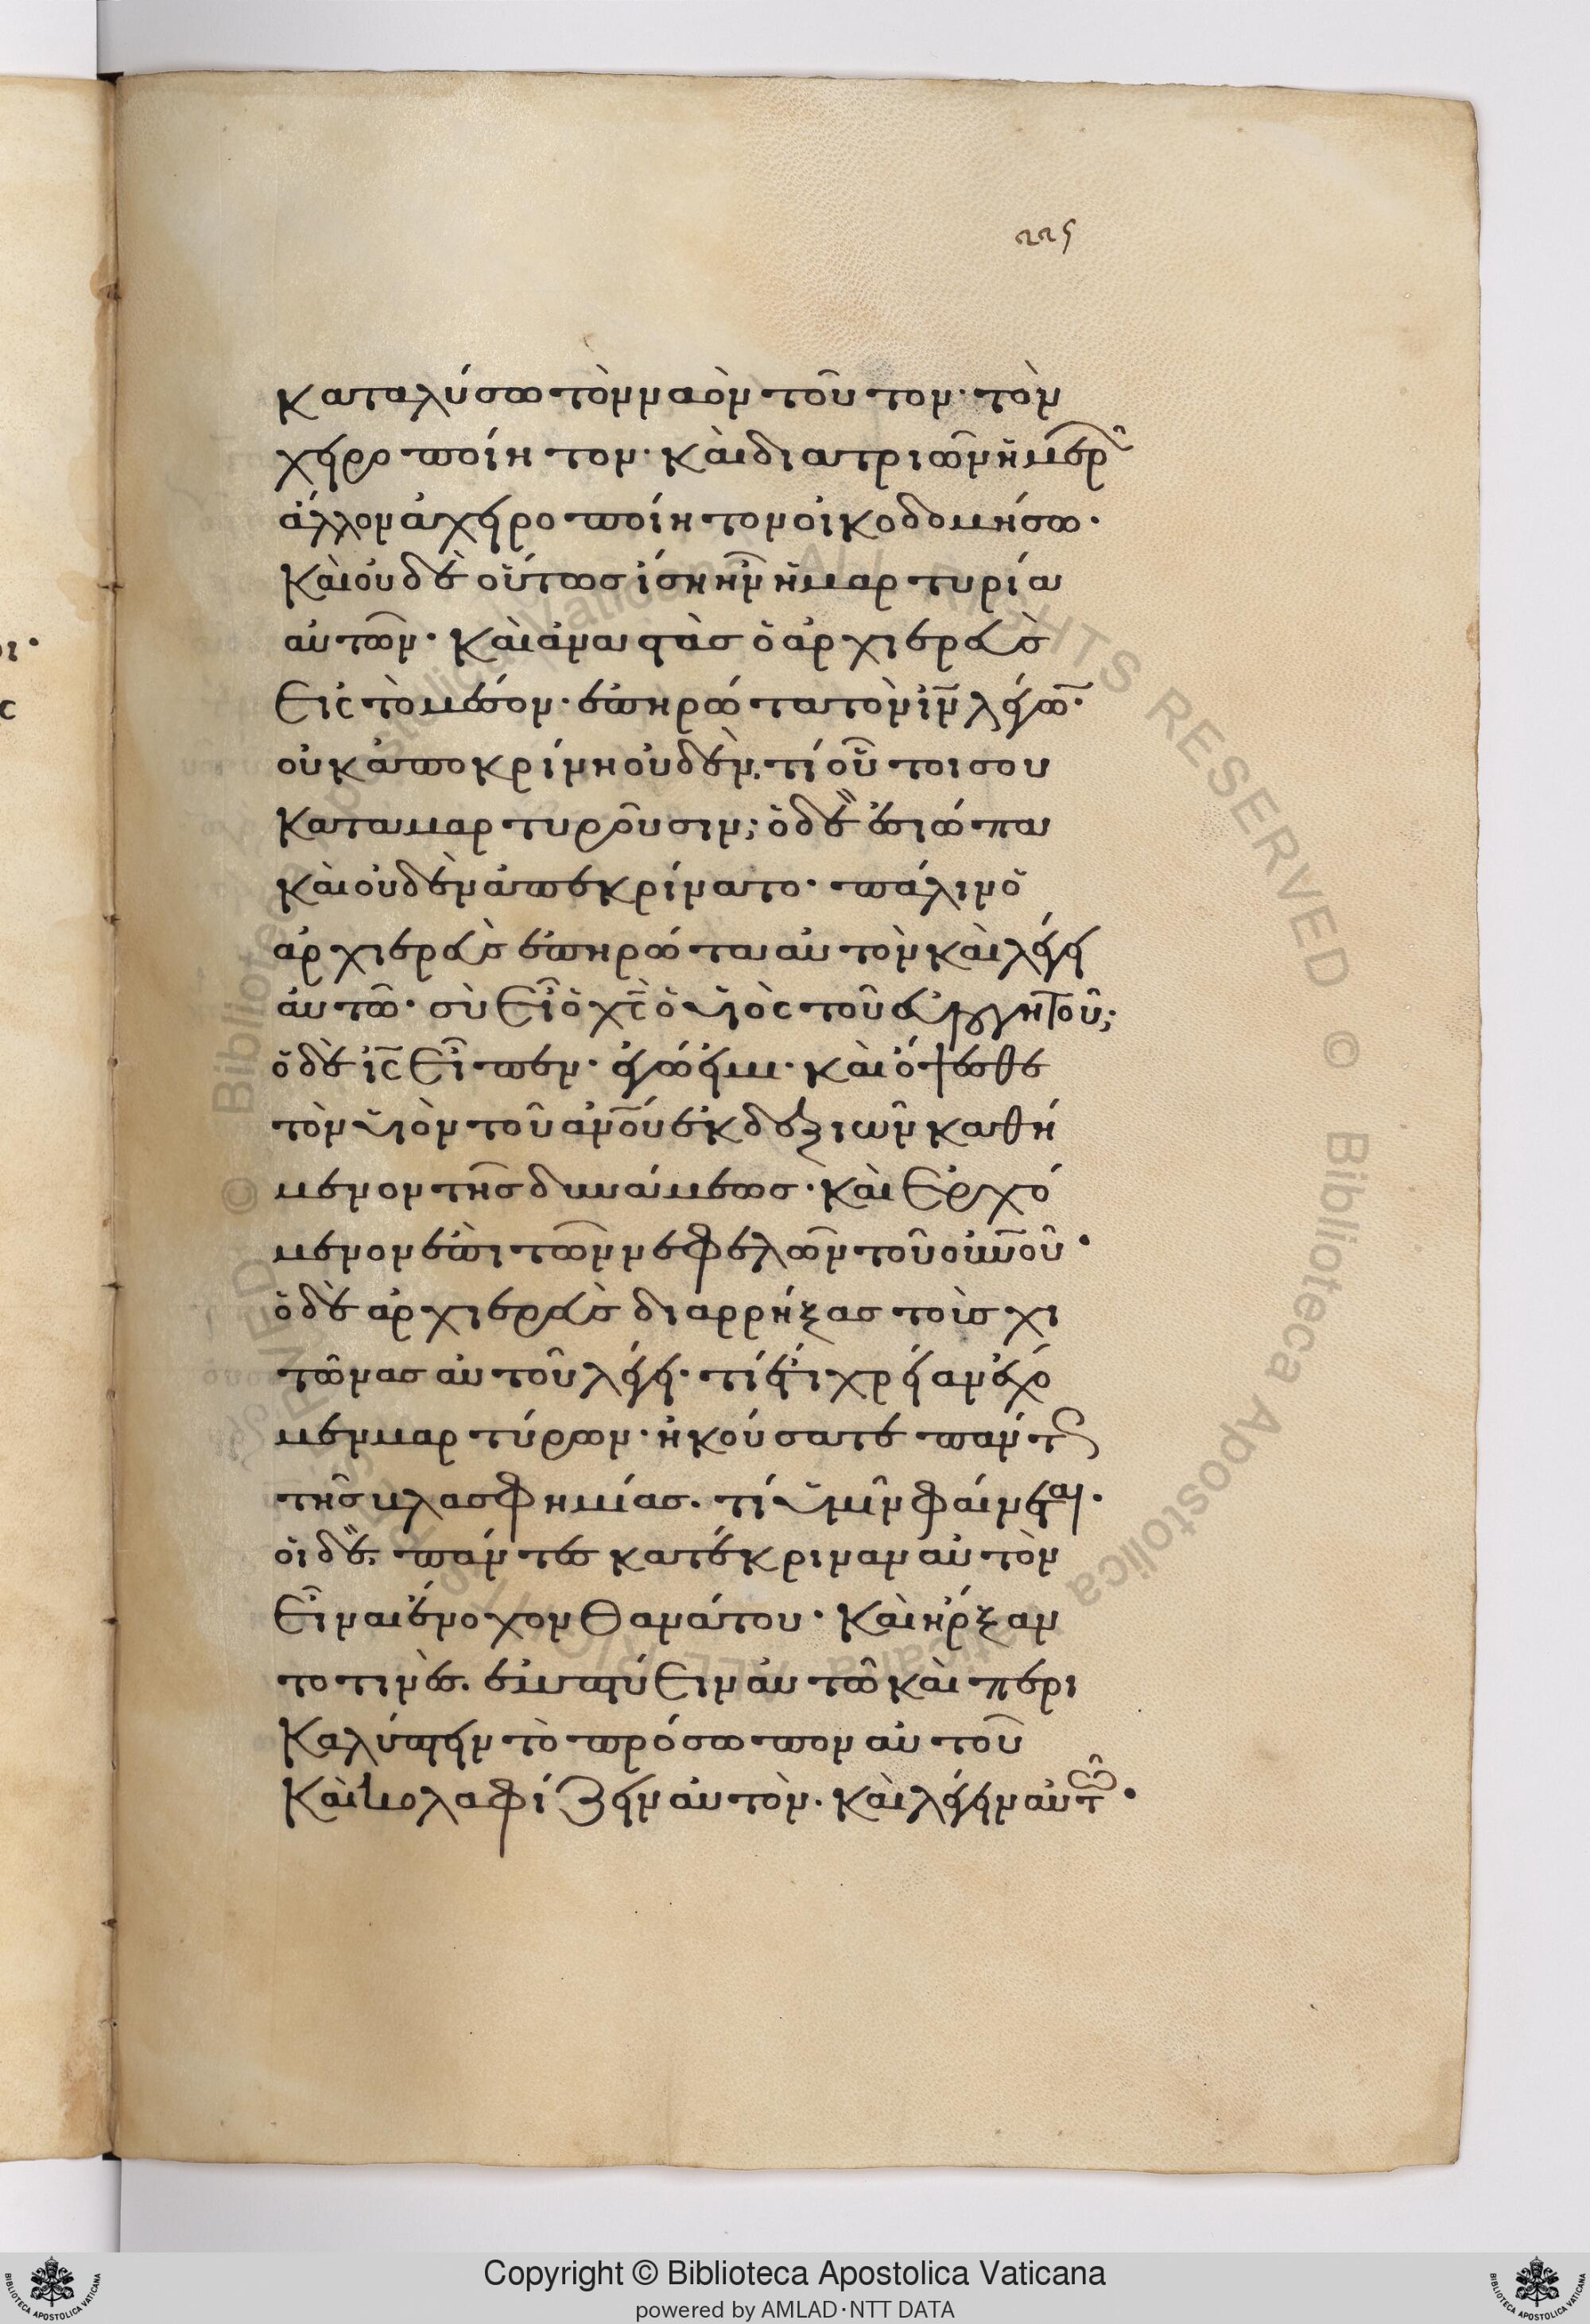 225
καταλύσω τὸν ναὸν τοῦτον· τὸν
χειροποίητον· καὶ διατριῶν ἡμερ
ἄλλον ἀχειροποίητον οἰκοδομήσω·
καὶ οὐδὲ οὕτως ἴση ἦν ἡ μαρτυρία
αὐτῶν· καὶ ἀναστὰς ὁ ἀρχιερεὺς
εἰς τὸ μέσον· ἐπηρώτα τὸν ιν̅ λέγω̅·
οὐκ ἀποκρίνη οὐδέν· τί οὗτοι σου
καταμαρτυροῦσιν; ὁ δὲ ἐσιώπα
καὶ οὐδὲν ἀπεκρίνατο· πάλιν ὁ
ἀρχιερεὺς ἐπηρώτα αὐτὸν καὶ λέγει
αὐτῶ· σὺ εἶ ὁ χς̅ ὁ υἱὸς τοῦ εὐλογητοῦ;
ὁ δὲ ις̅ εἶπεν· ἐγώ εἰμι· καὶ ὄψεσθε
τὸν υἱὸν τοῦ ανο̅υ ἐκ δεξιῶν καθή
μενον τῆς δυνάμεως· καὶ ἐρχό
μενον ἐπὶ τῶν νεφελῶν τοῦ ουνο̅υ·
ὁ δὲ ἀρχιερεὺς διαρρήξας τοὺς χι
τῶνας αὐτοῦ λέγει· τί ἔτι χρείαν ἔχο
μεν μαρτύρων· ἠκούσατε πάντ
τῆς βλασφημίας· τί ὑμῖν φαίνεται·
οἱ δὲ· πάντες κατέκριναν αὐτὸν
εἶναι ἔνοχον θανάτου· καὶ ἤρξαν
το τινὲς· ἐμπτύειν αὐτῶ καὶ περι
καλύπτειν τὸ πρόσωπον αὐτοῦ
καὶ κολαφίζειν αὐτὸν· καὶ λέγειν αὐτῶ·
Copyright © Biblioteca Apostolica Vaticana
powered by AMLAD·NTT DATA